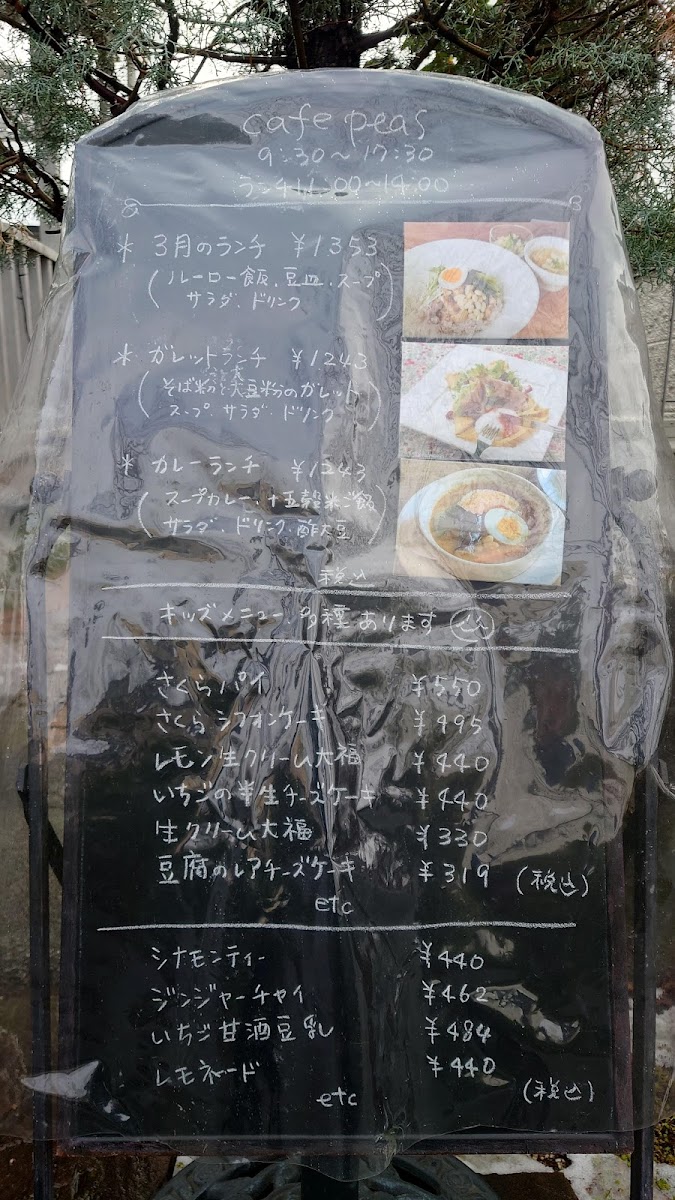 cafe peas
9:30〜17:30
ランチ11:00〜14:00
* 3月のランチ ¥1353
(ルーロー飯、豆皿、スープ
サラダ、ドリンク)
* ガレットランチ ¥1243
(そば粉と大豆粉のガレット
スープ、サラダ、ドリンク)
* カレーランチ ¥1243
(スープカレー、十五穀米ご飯
サラダ、ドリンク、酢大豆)
税込
キッズメニュー 多種あります
さくらパイ ¥550
さくらシフォンケーキ ¥495
レモン生クリーム大福 ¥440
いちごの半生チーズケーキ ¥440
生クリーム大福 ¥330
豆腐のレアチーズケーキ ¥319 (税込)
etc
シナモンティー ¥440
ジンジャーチャイ ¥462
いちご甘酒豆乳 ¥484
レモネード ¥440
etc (税込)